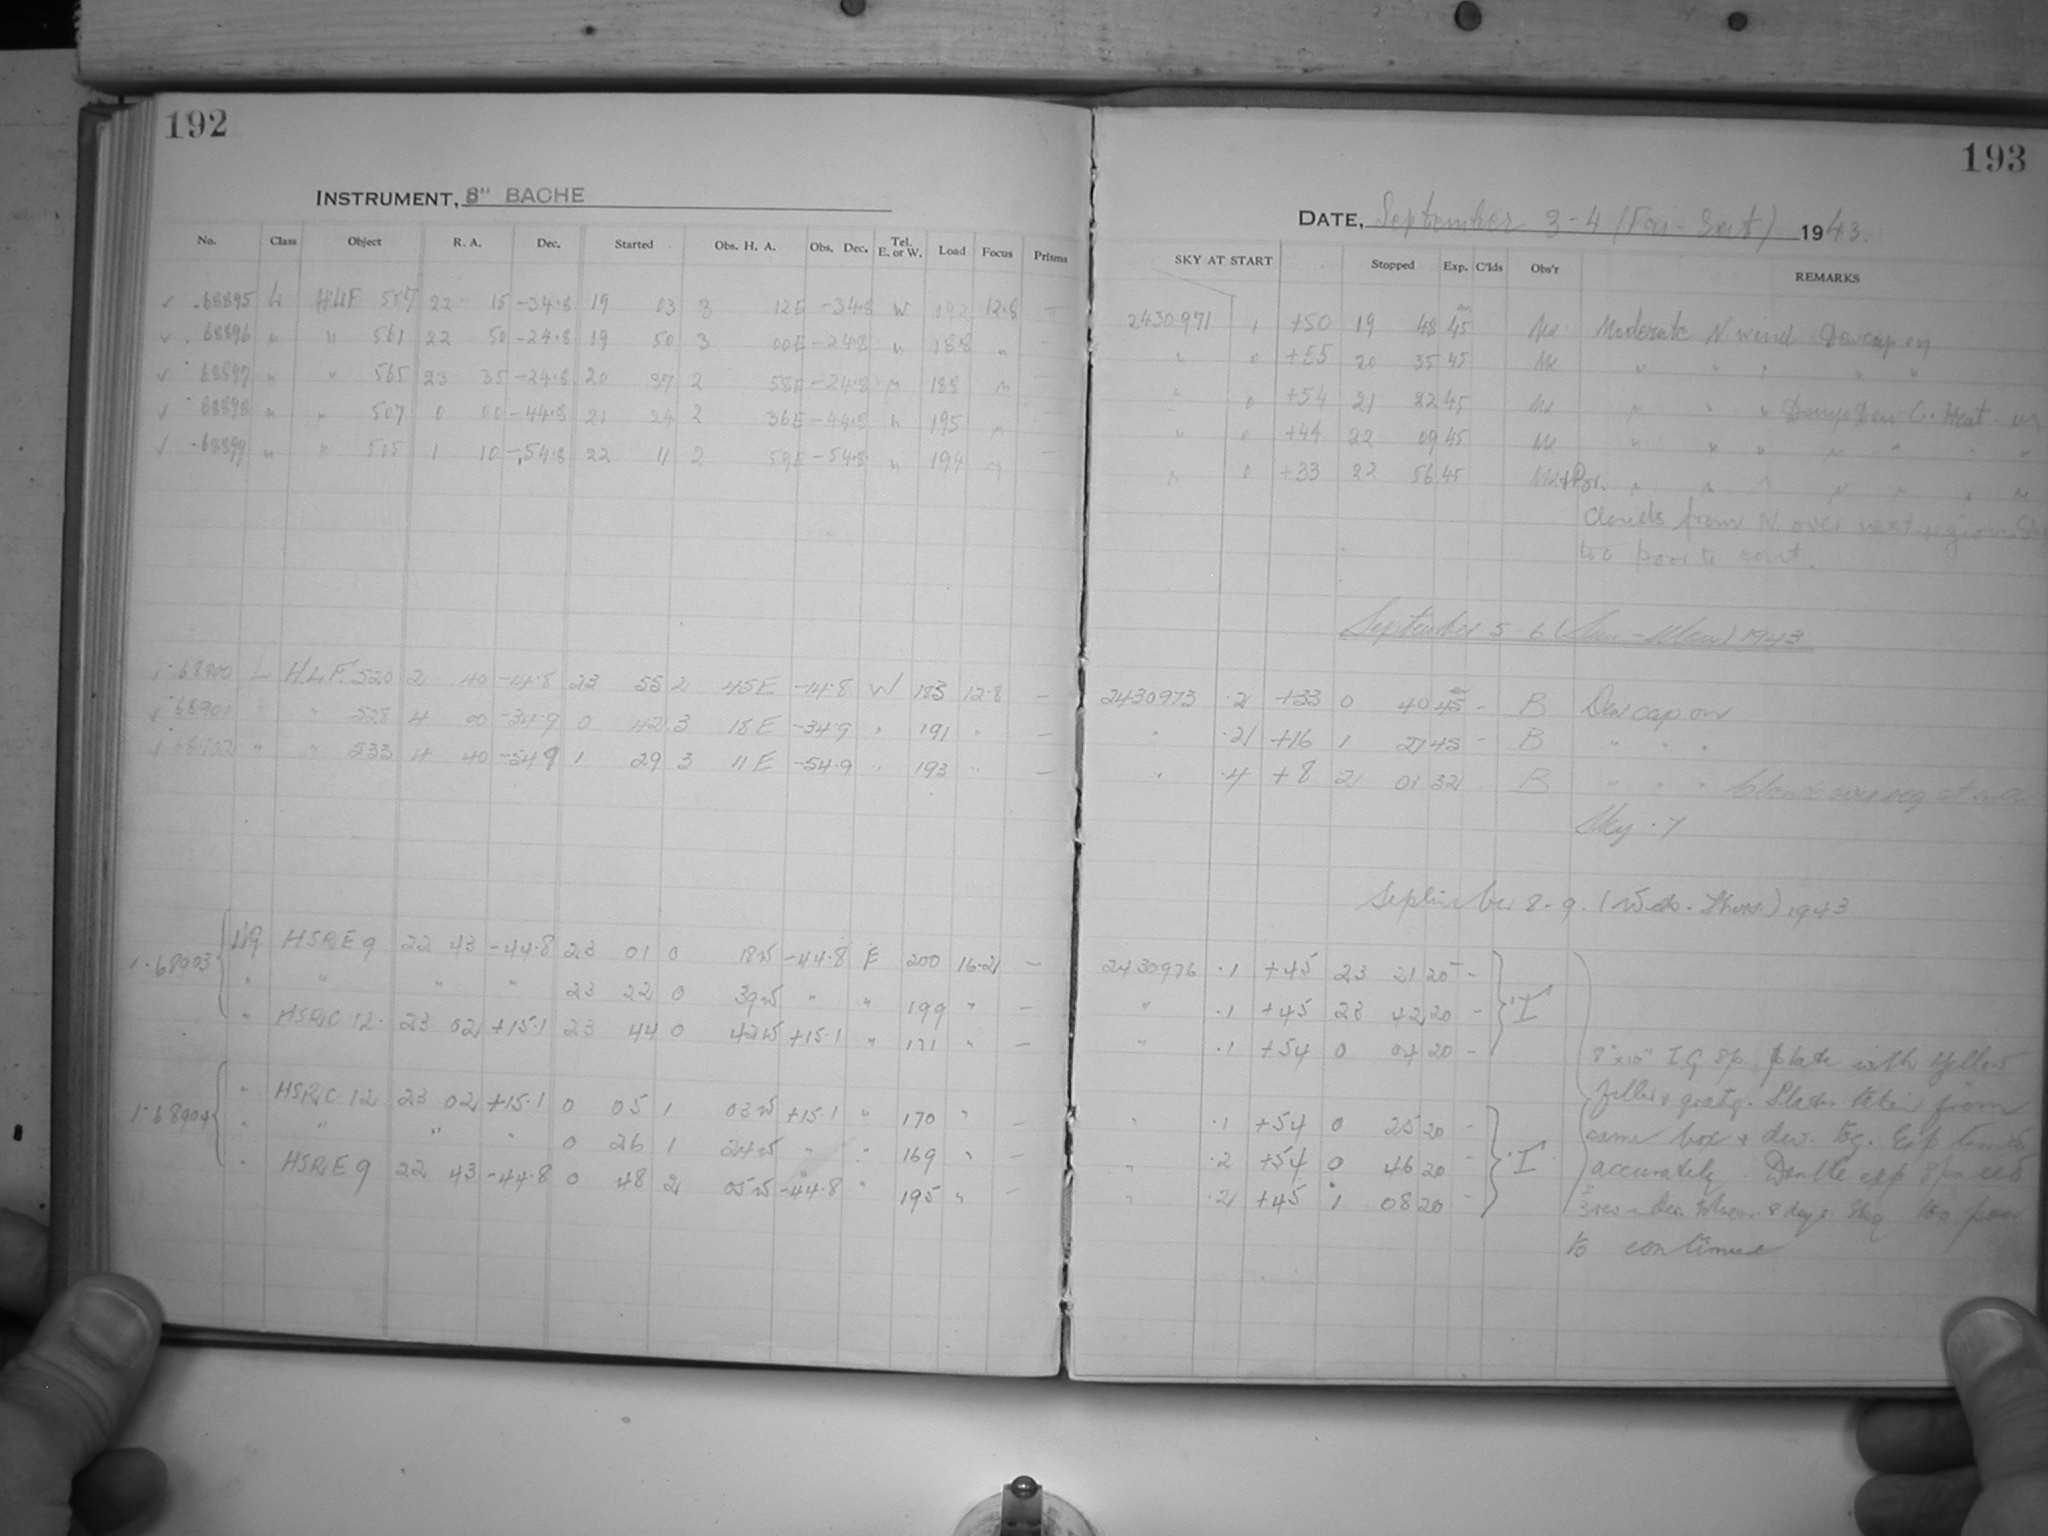 192
INSTRUMENT, 8" BACHE
No. Class Object R. A. Dec. Started Obs. H. A. Obs. Dec. Tel. E. or W. Load Focus Prisms
68895 L HLF 557 22 15 -34.8 19 03 3 12E -34.8 W 192 12.8 —
68896 " " 561 22 50 -24.8 19 50 3 00E -24.8 " 188 " —
68897 " " 565 23 35 -24.8 20 37 2 58E -24.8 " 188 " —
68898 " " 507 0 00 -44.8 21 24 2 36E -44.8 " 195 " —
68899 " " 515 1 10 -54.8 22 11 2 59E -54.8 " 194 " —
68900 L H.L.F. 520 2 40 -14.8 23 55 2 45E -14.8 W 183 12.8 —
68901 " 528 4 00 -34.9 0 42 3 18E -34.9 " 191 " —
68902 " " 533 4 40 -54.9 1 29 3 11E -54.9 " 193 " —
68903 IG HSP,E 9 22 43 -44.8 23 01 0 18W -44.8 E 200 16.2 —
" " " " 23 22 0 39W " " 199 " —
" HSP,C 12 23 02 +15.1 23 44 0 42W +15.1 " 171 " —
68904 " HSP,C 12 23 02 +15.1 0 05 1 03W +15.1 " 170 " —
" " " " 0 26 1 24W " " 169 " —
" HSP,E 9 22 43 -44.8 0 48 2 05W -44.8 " 195 " —
193
DATE, September 3-4 (Fri-Sat) 1943.
SKY AT START Stopped Exp. C'lds Obs'r REMARKS
2430971 1 +50 19 48 45 Mc Moderate N. wind Dewcap on
" 0 +55 20 35 45 Mc " " " " "
" 0 +54 21 22 45 Mc " " " Damp Dew C. Heat on
" 0 +44 22 09 45 Mc " " " " " " "
" 0 +33 22 56 45 " " " " " " "
Clouds from N. over next region
too poor to cont.
September 5-6 (Sun-Mon) 1943
2430973 .2 +33 0 40 45 - B Dew cap on
" .2 +16 1 27 45 - B " " "
" .4 +8 2 01 32 B " " " Clouds over reg at end
Sky .7
September 8-9. (Wed.-Thurs.) 1943
2430976 .1 +45 23 21 20 - I
" .1 +45 23 42 20 -
" .1 +54 0 04 20 -
8"x10" I.G. sp. plate with yellow
filter & gratg. Plates taken from
" .1 +54 0 25 20 -
same box & dev. tog. Exp timed
" .2 +54 0 46 20 - I
accurately. Double exp
" .2 +45 1 08 20 -
Sky too poor
to continue